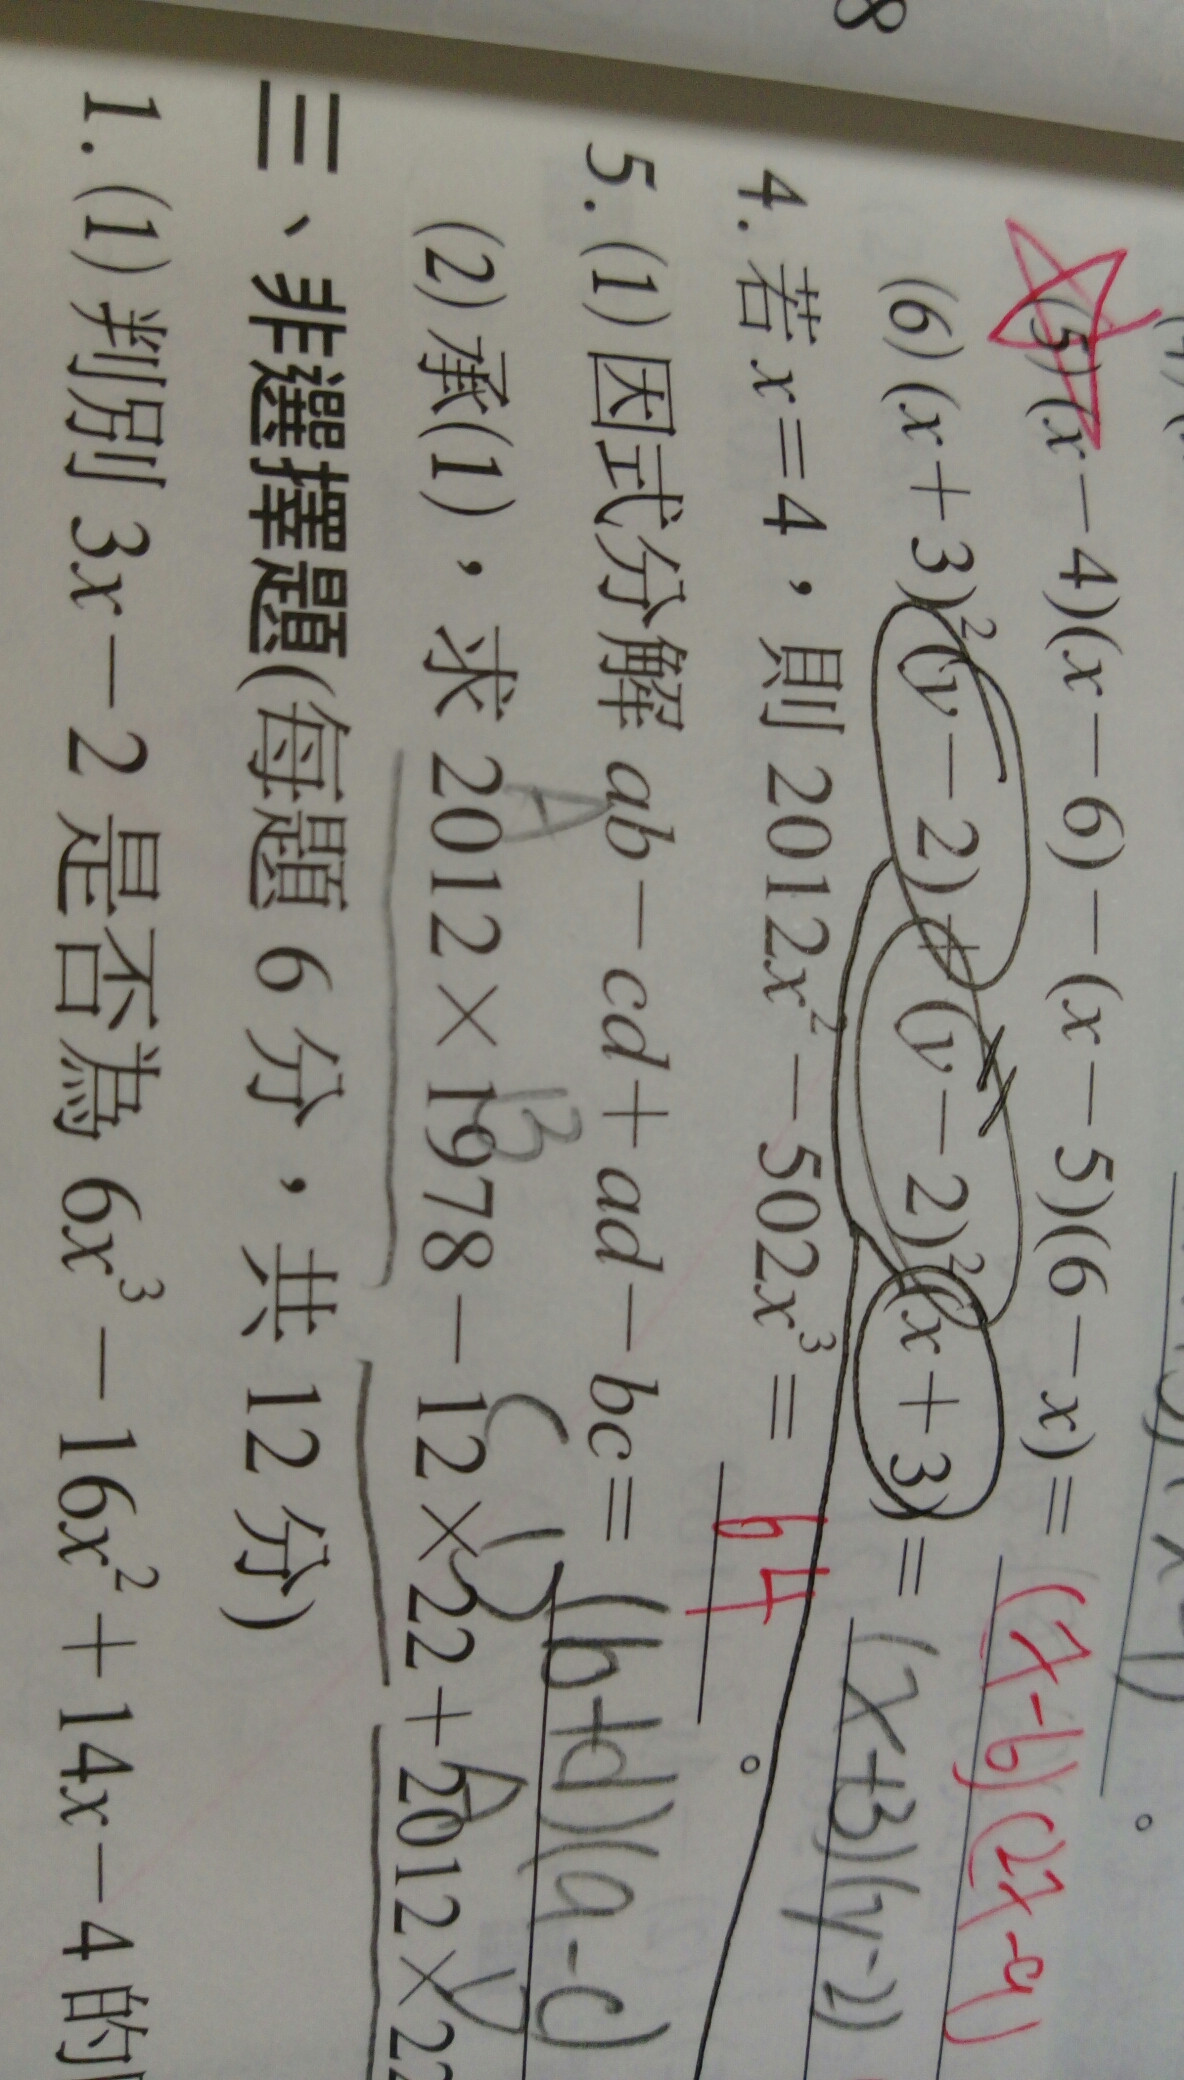 8
(5)(x-4)(x-6)-(x-5)(6-x)= (x-6)(2x-9)
(6)(x+3)²(y-2)+(y-2)²(x+3)= (x+3)(y-2)
4.若x=4,則2012x²-502x³= 64 。
5.(1)因式分解ab-cd+ad-bc= (b+d)(a-c)
A B C D A D
(2)承(1),求2012×1978-12×22+2012×22
三、非選擇題(每題6分,共12分)
1.(1)判別3x-2是否為6x³-16x²+14x-4的